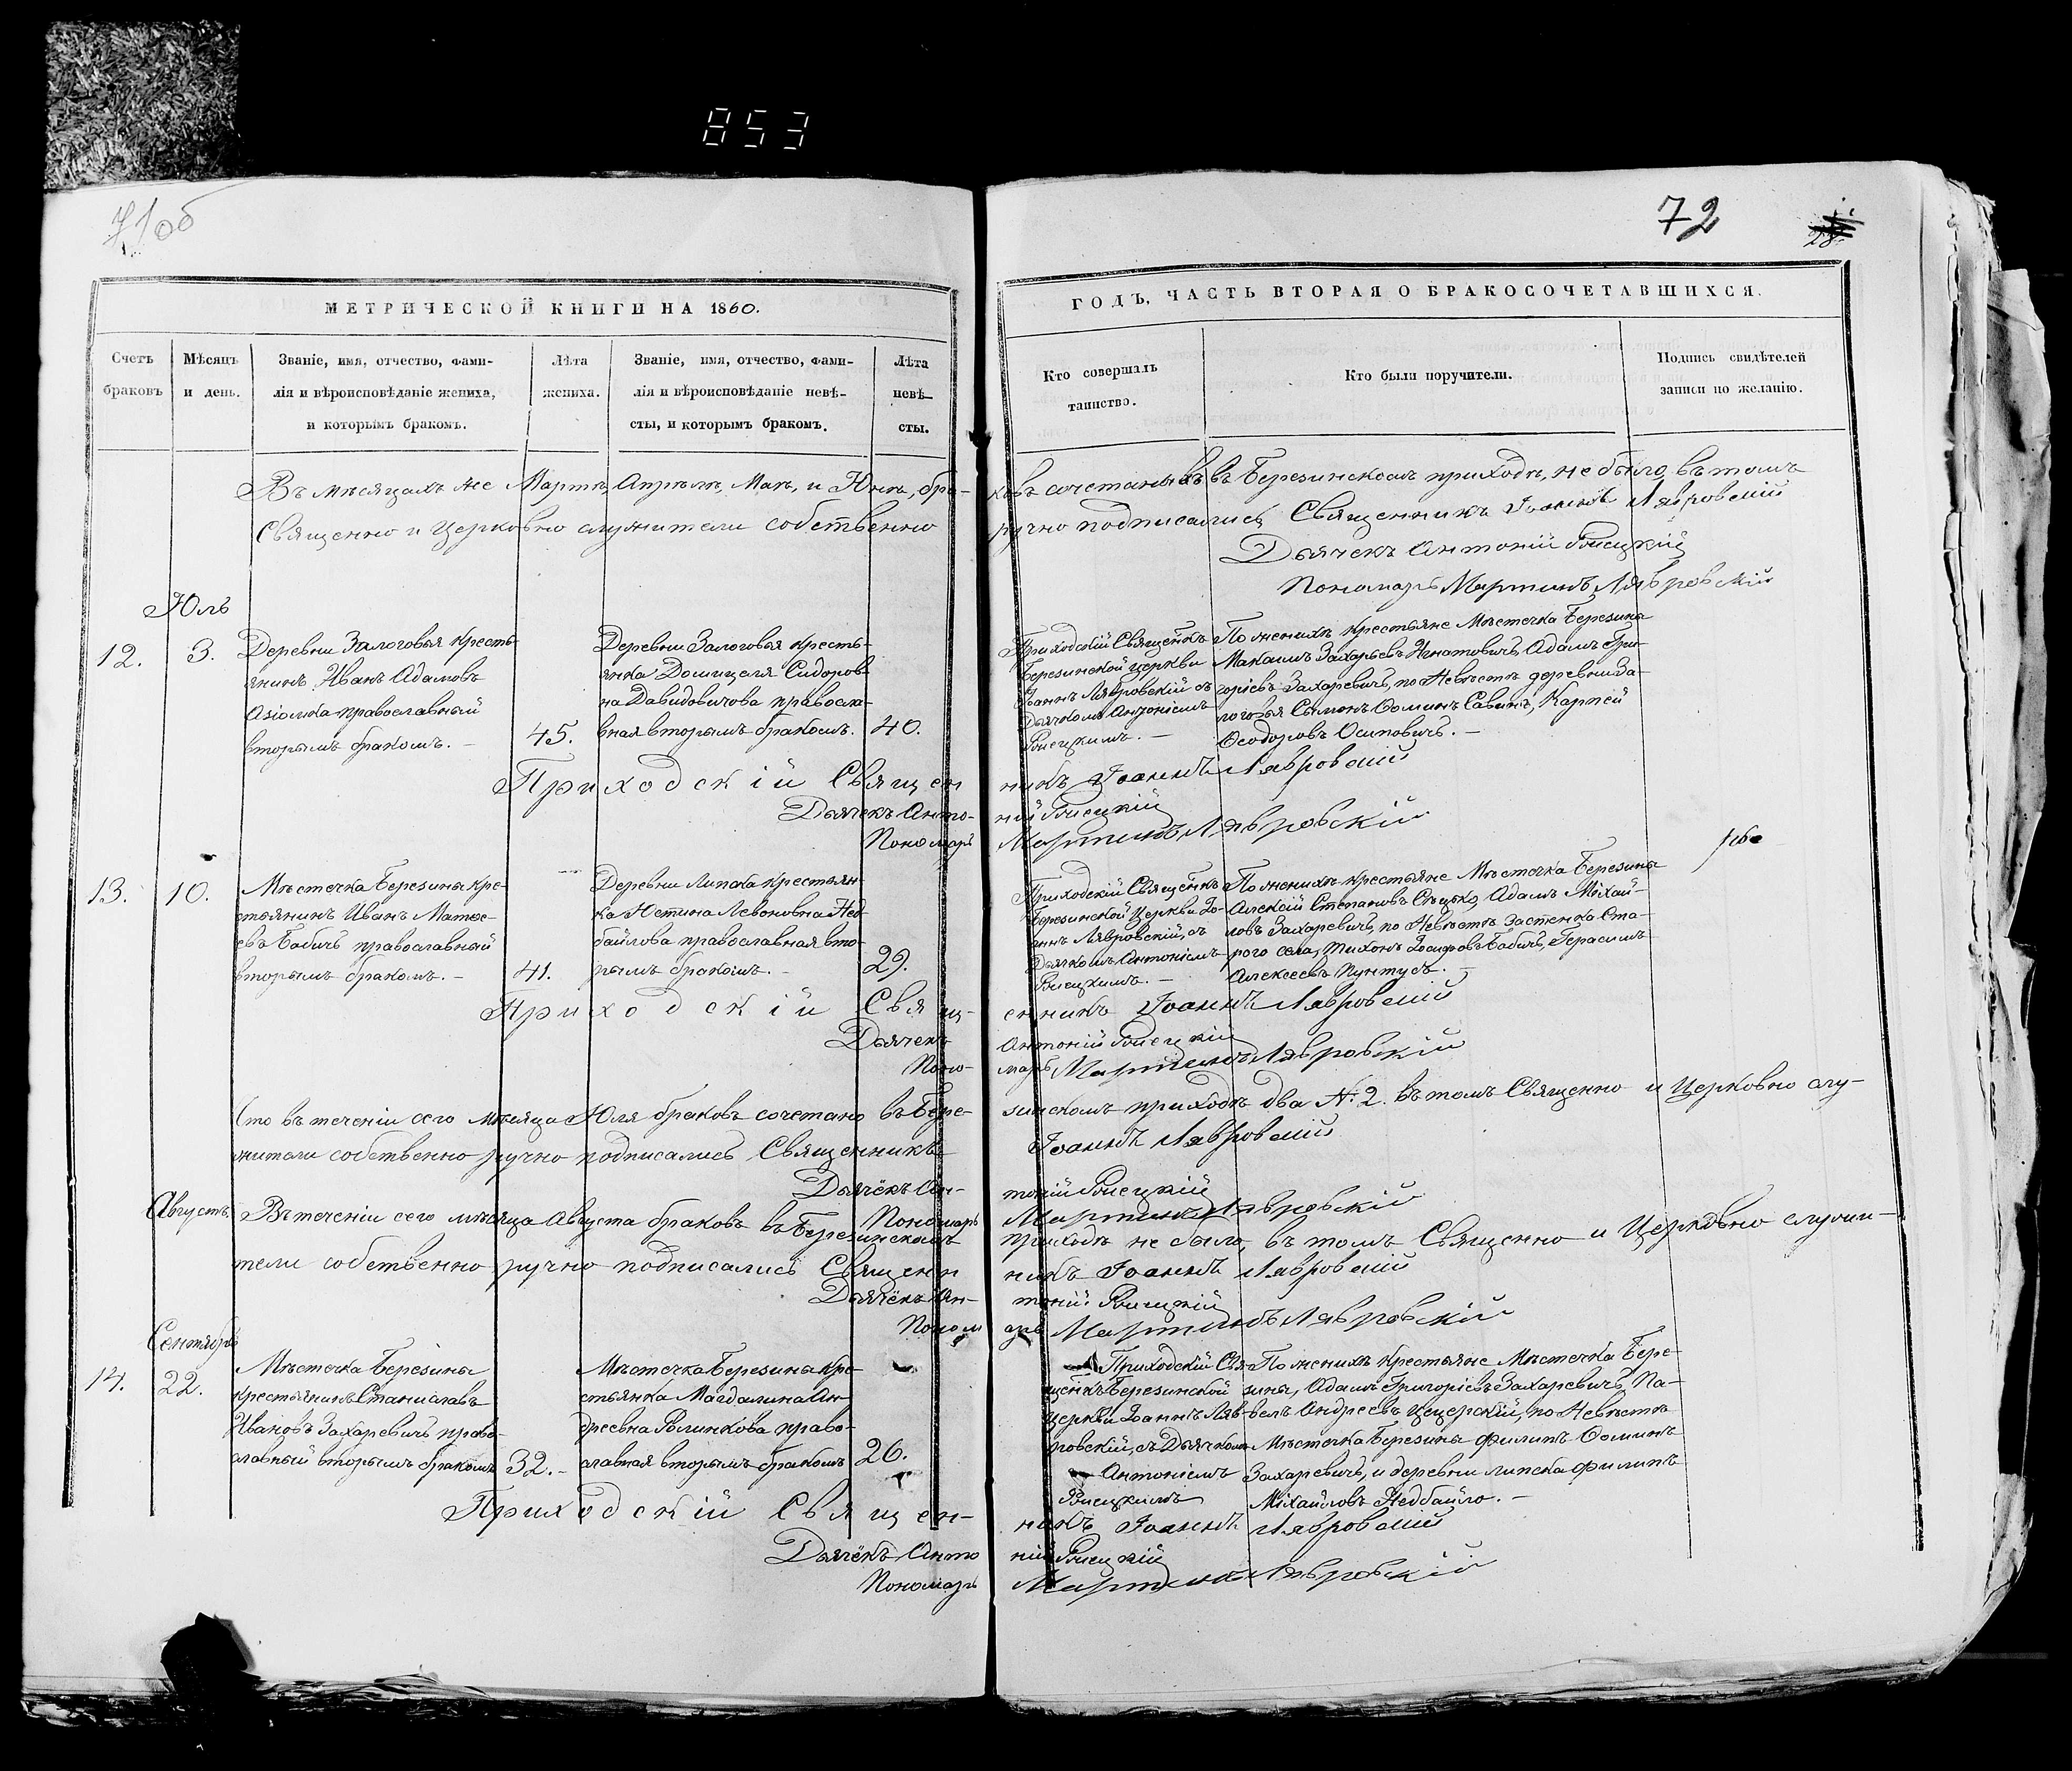 853
71об
72
28.
МЕТРИЧЕСКОЙ КНИГИ НА 1860.
ГОДЪ, ЧАСТЬ ВТОРАЯ О БРАКОСОЧЕТАВШИХСЯ.
Счетъ браковъ
Мѣсяцъ и день.
Званіе, имя, отчество, фами-
лія и вѣроисповѣданіе жениха,
и которымъ бракомъ.
Лѣта жениха.
Званіе, имя, отчество, фами-
лія и вѣроисповѣданіе невѣ-
сты, и которымъ бракомъ.
Лѣта невѣ-
сты.
Кто совершалъ таинство.
Кто были поручители.
Подпись свидѣтелей
записи по желанію.
Въ мѣсяцахъ же Мартѣ, Апрѣлѣ, Маѣ, и Юнѣ, бра-
ковъ сочетанныхъ въ Березинскомъ приходѣ, не было, въ томъ
Священно и церковно служители собственно
ручно подписались Священникъ Іоаннъ Лявровскій
Дьячекъ Антоній
Пономарь Мартинъ Лявровскій
Юль
12.
3.
Деревни Залоговья Кресть-
янинъ Иванъ Адамовъ
православный
вторымъ бракомъ. -
45.
Деревни Залоговья кресть-
янка Домицеля Сидоров-
на Давидовичова правосла-
вная вторымъ бракомъ.
40.
Приходскій Священкъ
Березинской церкви
Іоаннъ Лявровскій съ
Дьячкомъ Антоніемъ
По женихѣ крестьяне Мѣстечка Березины
Максимъ Захарьевъ Игнатовичъ, Адамъ Гри-
горіевъ Захаревичъ, по Невѣстѣ деревни За-
логовья Сымонъ Ѳоминъ Савинъ, Карпей
Ѳеодоровъ Осиповичъ. -
Приходскій Священ
никъ Іоаннъ Лявровскій
Дьячекъ Анто-
ній
Пономарь
Мартинъ Лявровскій
13.
10.
Мѣстечка Березины кре-
стьянинъ Иванъ Матѳе-
евъ Бабичъ православный
вторымъ бракомъ. -
41.
Деревни Липска крестьян-
ка Юстина Левоновна Нед-
байлова православная вто-
рымъ бракомъ. -
29.
Приходскій Священкъ
Березинской Церкви Іо-
аннъ Лявровскій, съ
Дьячкомъ Антоніемъ
По женихѣ крестьяне Мѣстечка Березины
Алексій Степановъ Сѣцько, Адамъ Михай-
ловъ Захаревичъ, по Невѣстѣ Застенка Ста-
рого села, Тихонъ Іосифовъ Бабичъ, Герасимъ
Алексеевъ Пунтусъ. -
Приходскій Свящ-
енникъ Іоаннъ Лявровскій
Дьячекъ
Антоній
Поно-
марь Мартинъ Лявровскій
Что въ теченіи сего мѣсяца Юля браковъ сочетано въ Бере-
зинскомъ приходѣ два №. 2. въ томъ Священно и Церковно слу-
жители собственно ручно подписались Священникъ
Іоаннъ Лявровскій
Дьячёкъ Ан-
тоній
Пономарь
Мартинъ Лявровскій
Августъ
Въ теченіи сего мѣсяца Августа браковъ въ Березинскомъ
приходѣ не было, въ томъ Священно и Церковно служи-
тели собственно ручно подписались Священ
никъ Іоаннъ Лявровскій
Дьячёкъ Ан-
тоній
Поном
арь Мартинъ Лявровскій
Сентябрь
14.
22.
Мѣстечка Березины
Крестьянинъ Станиславъ
Ивановъ Захаревичъ право-
славный вторымъ бракомъ
32. -
Мѣстечка Березины кре-
стьянка Магдалина Ан-
дреевна право-
славная вторымъ бракомъ
26.
Приходскій Свя-
щенкъ Березинской
церкви Іоаннъ Ляв-
ровскій, съ Дьячкомъ
Антоніемъ
По женихѣ Крестьяне Мѣстечка Бере-
зины, Адамъ Григоріевъ Захаревичъ, Па-
велъ Андреевъ Цецерскій, по Невѣстѣ
Мѣстечка Березины Филипъ Ѳоминъ
Захаревичъ, и деревни Липска Филипъ
Михайловъ Недбайло. -
Приходскій Священ-
никъ Іоаннъ Лявровскій
Дьячёкъ Анто
ній
Пономарь
Мартинъ Лявровскій